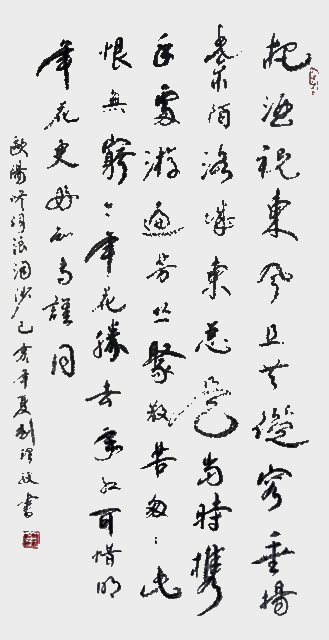 把酒祝東風且共從容垂楊
紫陌洛城東總是當時攜
手處游遍芳叢聚散苦匆匆此
恨無窮今年花勝去年紅可惜明
年花更好知與誰同
歐陽修詞浪淘沙己亥年夏劉